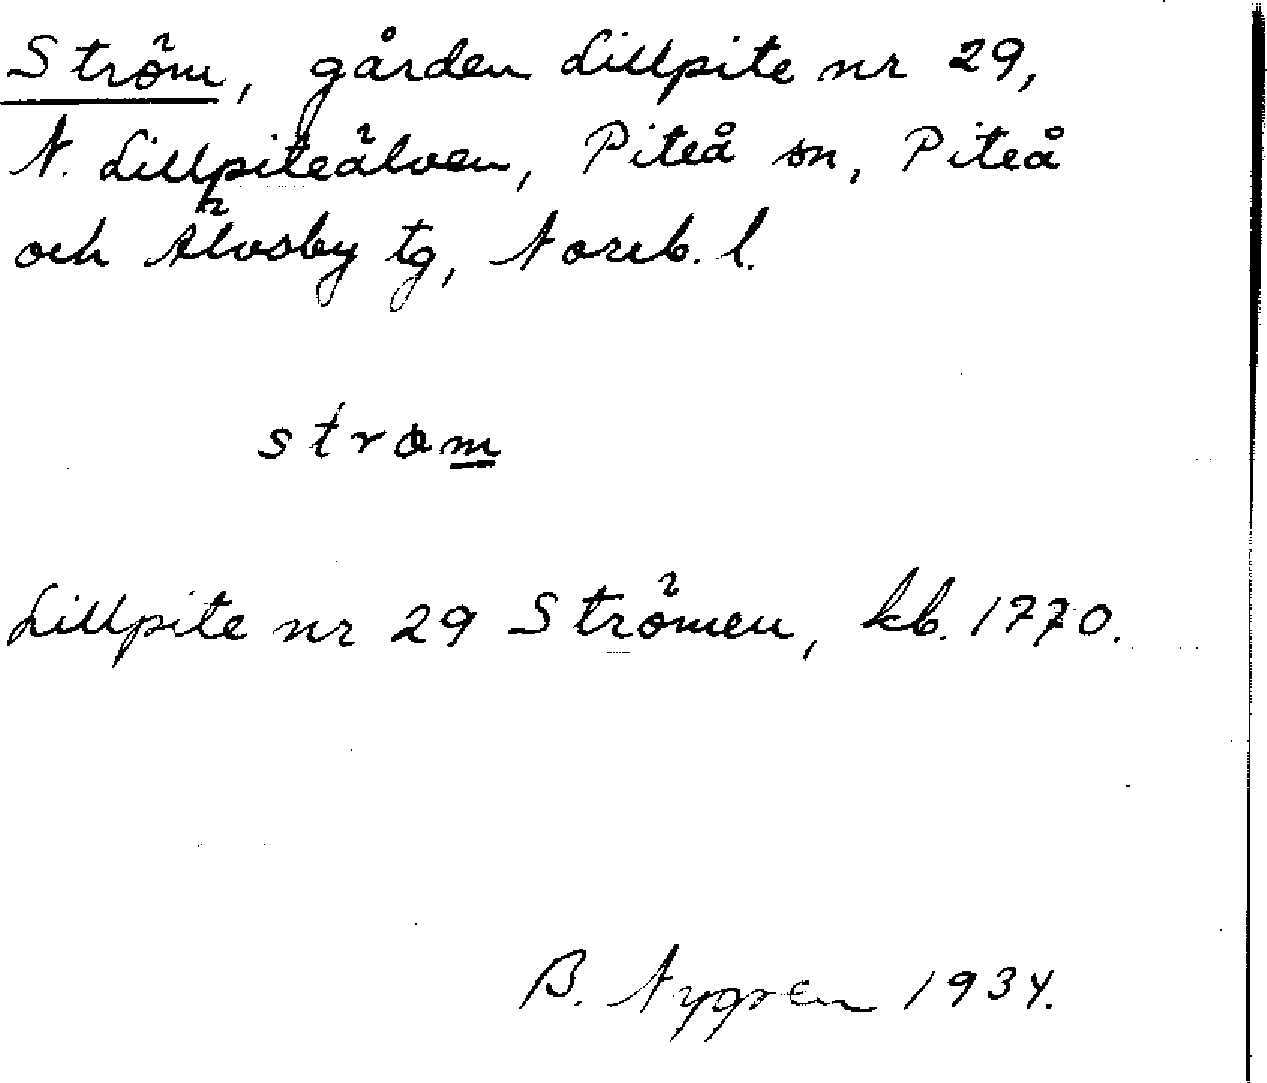 Ström, gården Lillpite nr 29,
N. Lillpiteälven, Piteå sn, Piteå
och Älvsby tg, Norrb. l.
strɵm
Lillpite nr 29 Strömen, kb. 1770.
B. Nygren 1934.